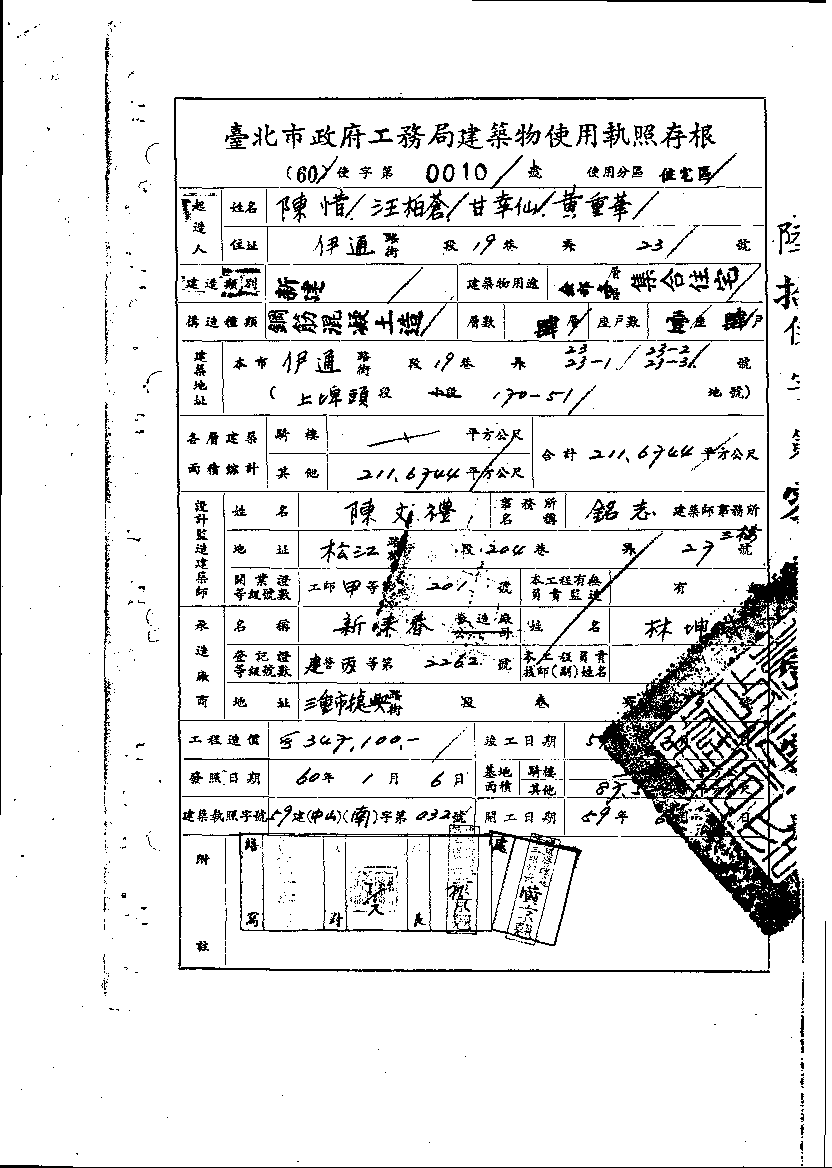 臺北市政府工務局建築物使用執照存根
(60)使字第 0010 號 使用分區 住宅區
起造人 姓名 陳惜 汪柏蒼 甘幸仙 黃重華
住址 伊通 路街 段 19 巷 弄 23 號
建造類別 新建 建築物用途 集合住宅
構造種類 鋼筋混凝土造 層數 肆層 座戶數 座 肆戶
建築地址 本市 伊通 路街 段 19 巷 弄 23 23-1 23-2 23-3 號
(上埤頭段 小段 170-51 地號)
各層建築面積總計 騎樓 平方公尺 合計 211.6744 平方公尺
其他 211.6744 平方公尺
設計監造建築師 姓名 陳文禮 事務所名稱 銘志 建築師事務所
地址 松江 路街 段 204 巷 弄 27 號 三樓
開業證等級號數 工師甲等第 201 號 本工程有無員責監造 有
承造廠商 名稱 新味香 營造廠公司 姓名 林坤
登記證等級號數 建營丙等第 2262 號 本工程員責技師(副)姓名
地址 三重市 路街 段 巷
工程造價 347,100.- 竣工日期
發照日期 60年 1月 6日 基地面積 騎樓
其他
建築執照字號 59建(中山)(南)字第 032 號 開工日期 59年
附註
繕寫 校對 長 處